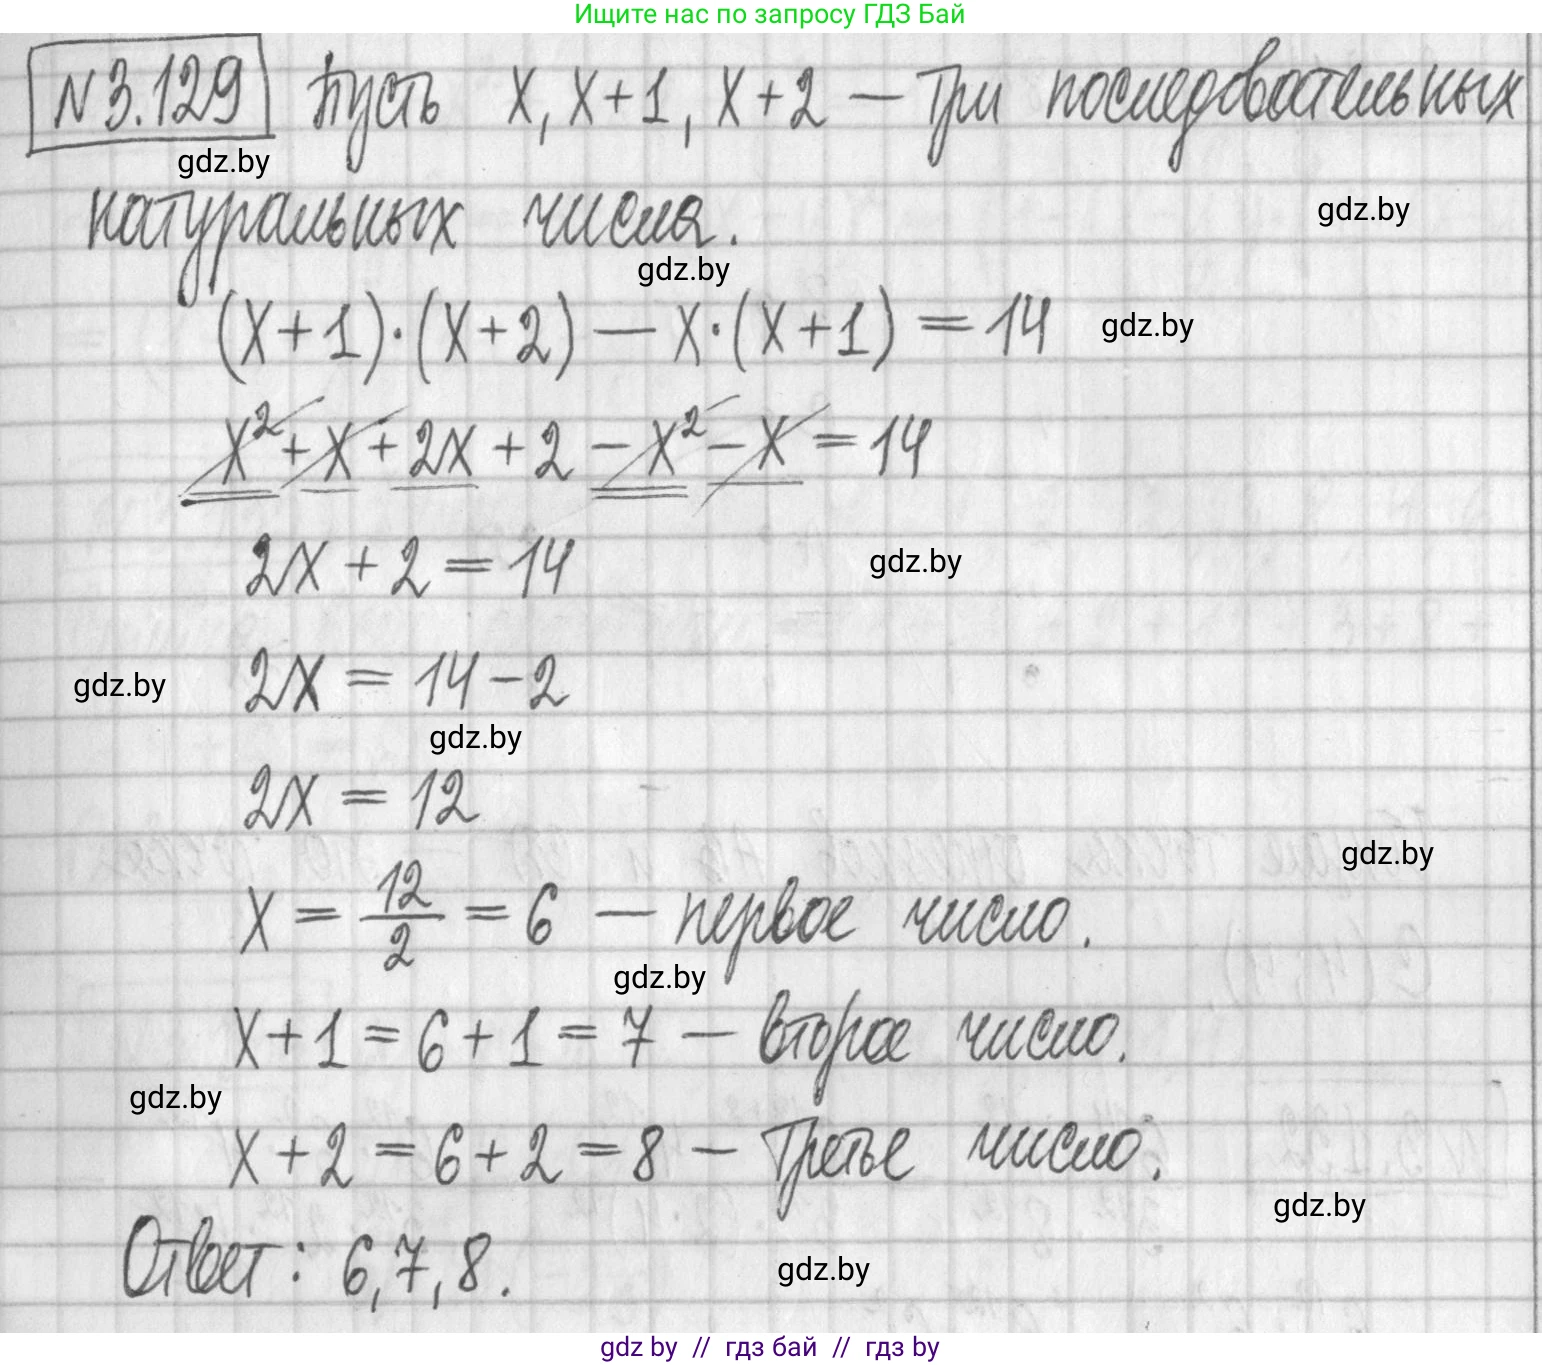 Ищите нас по запросу ГДЗ Бай
N 3.129 Пусть x, x+1, x+2 — три последовательных
gdz.by
натуральных числа.
gdz.by
gdz.by
(x+1)·(x+2) — x·(x+1) = 14
gdz.by
x²+x+2x+2-x²-x=14
2x+2=14
gdz.by
2x = 14-2
gdz.by
gdz.by
2x = 12
gdz.by
x = 12/2 = 6 — первое число.
gdz.by
x+1=6+1=7 — второе число.
gdz.by
x+2=6+2=8 — третье число.
gdz.by
Ответ: 6,7,8.
gdz.by
gdz by // гдз бай // гдз by